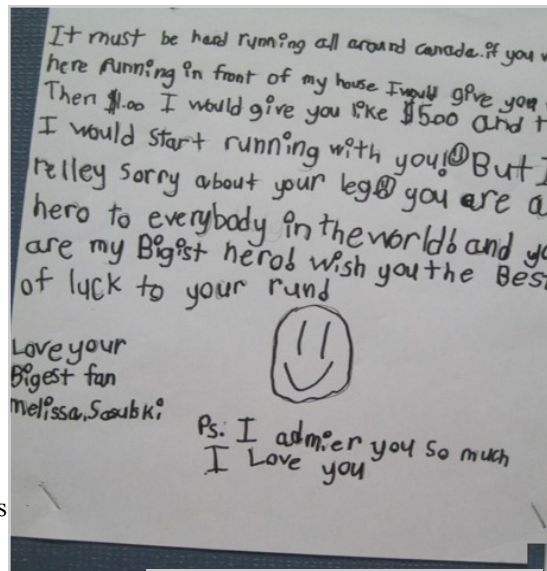 It must be hard running all around canada. if you
here running in front of my house I would give you
Then $1.00 I would give you like $500 and
I would start running with you! But I
relley sorry about your leg you are a
hero to everybody in the world! and
are my Bigist hero! wish you the Best
of luck to your run!
Love your
Bigest fan
melissa,
Ps: I admier you so much
I Love you
s